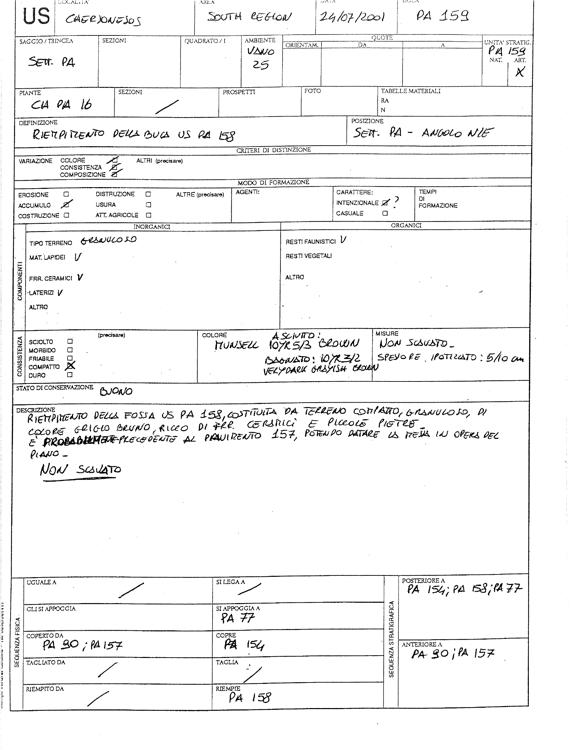 US
LOCALITA'
CHERSONESOS
AREA
SOUTH REGION
DATA
24/07/2001
PA 159
SAGGIO / TRINCEA
Sett. PA
SEZIONI
QUADRATO / I
AMBIENTE
VANO
25
QUOTE
ORIENTAM.
DA
A
UNITA' STRATIG.
PA 159
NAT. ART.
X
PIANTE
CIA PA 16
SEZIONI
/
PROSPETTI
FOTO
TABELLE MATERIALI
RA
N
DEFINIZIONE
RIEMPIMENTO DELLA BUCA US PA 158
POSIZIONE
SETT. PA - ANGOLO N/E
CRITERI DI DISTINZIONE
VARIAZIONE COLORE
CONSISTENZA
COMPOSIZIONE
ALTRI (precisare)
MODO DI FORMAZIONE
EROSIONE
ACCUMULO
COSTRUZIONE
DISTRUZIONE
USURA
ATT. AGRICOLE
ALTRE (precisare)
AGENTI:
CARATTERE:
INTENZIONALE ?
CASUALE
TEMPI
DI
FORMAZIONE
COMPONENTI
INORGANICI
TIPO TERRENO GRANULOSO
MAT. LAPIDEI V
FRR. CERAMICI V
LATERIZI V
ALTRO
ORGANICI
RESTI FAUNISTICI V
RESTI VEGETALI
ALTRO
CONSISTENZA
(precisare)
SCIOLTO
MORBIDO
FRIABILE
COMPATTO
DURO
COLORE
ASCIUTTO:
MUNSELL 10YR5/3 BROWN
BAGNATO: 10YR3/2
VERY DARK GRAYISH BROWN
MISURE
NON SCAVATO_
SPESSORE IPOTIZZATO: 5/10 cm
STATO DI CONSERVAZIONE
BUONO
DESCRIZIONE
RIEMPIMENTO DELLA FOSSA US PA 158, COSTITUITA DA TERRENO COMPATTO, GRANULOSO, DI
COLORE GRIGIO BRUNO, RICCO DI FRR. CERAMICI E PICCOLE PIETRE_
E' PROBABILMENTE PRECEDENTE AL PAVIMENTO 157, POTENDO DATARE LA MESSA IN OPERA DEL
PIANO_
NON SCAVATO
SEQUENZA FISICA
UGUALE A
/
SI LEGA A
/
GLI SI APPOGGIA
SI APPOGGIA A
PA 77
COPERTO DA
PA 90 ; PA157
COPRE
PA 154
TAGLIATO DA
/
TAGLIA
/
RIEMPITO DA
/
RIEMPIE
PA 158
SEQUENZA STRATIGRAFICA
POSTERIORE A
PA 154; PA 158; PA 77
ANTERIORE A
PA 90 ; PA 157